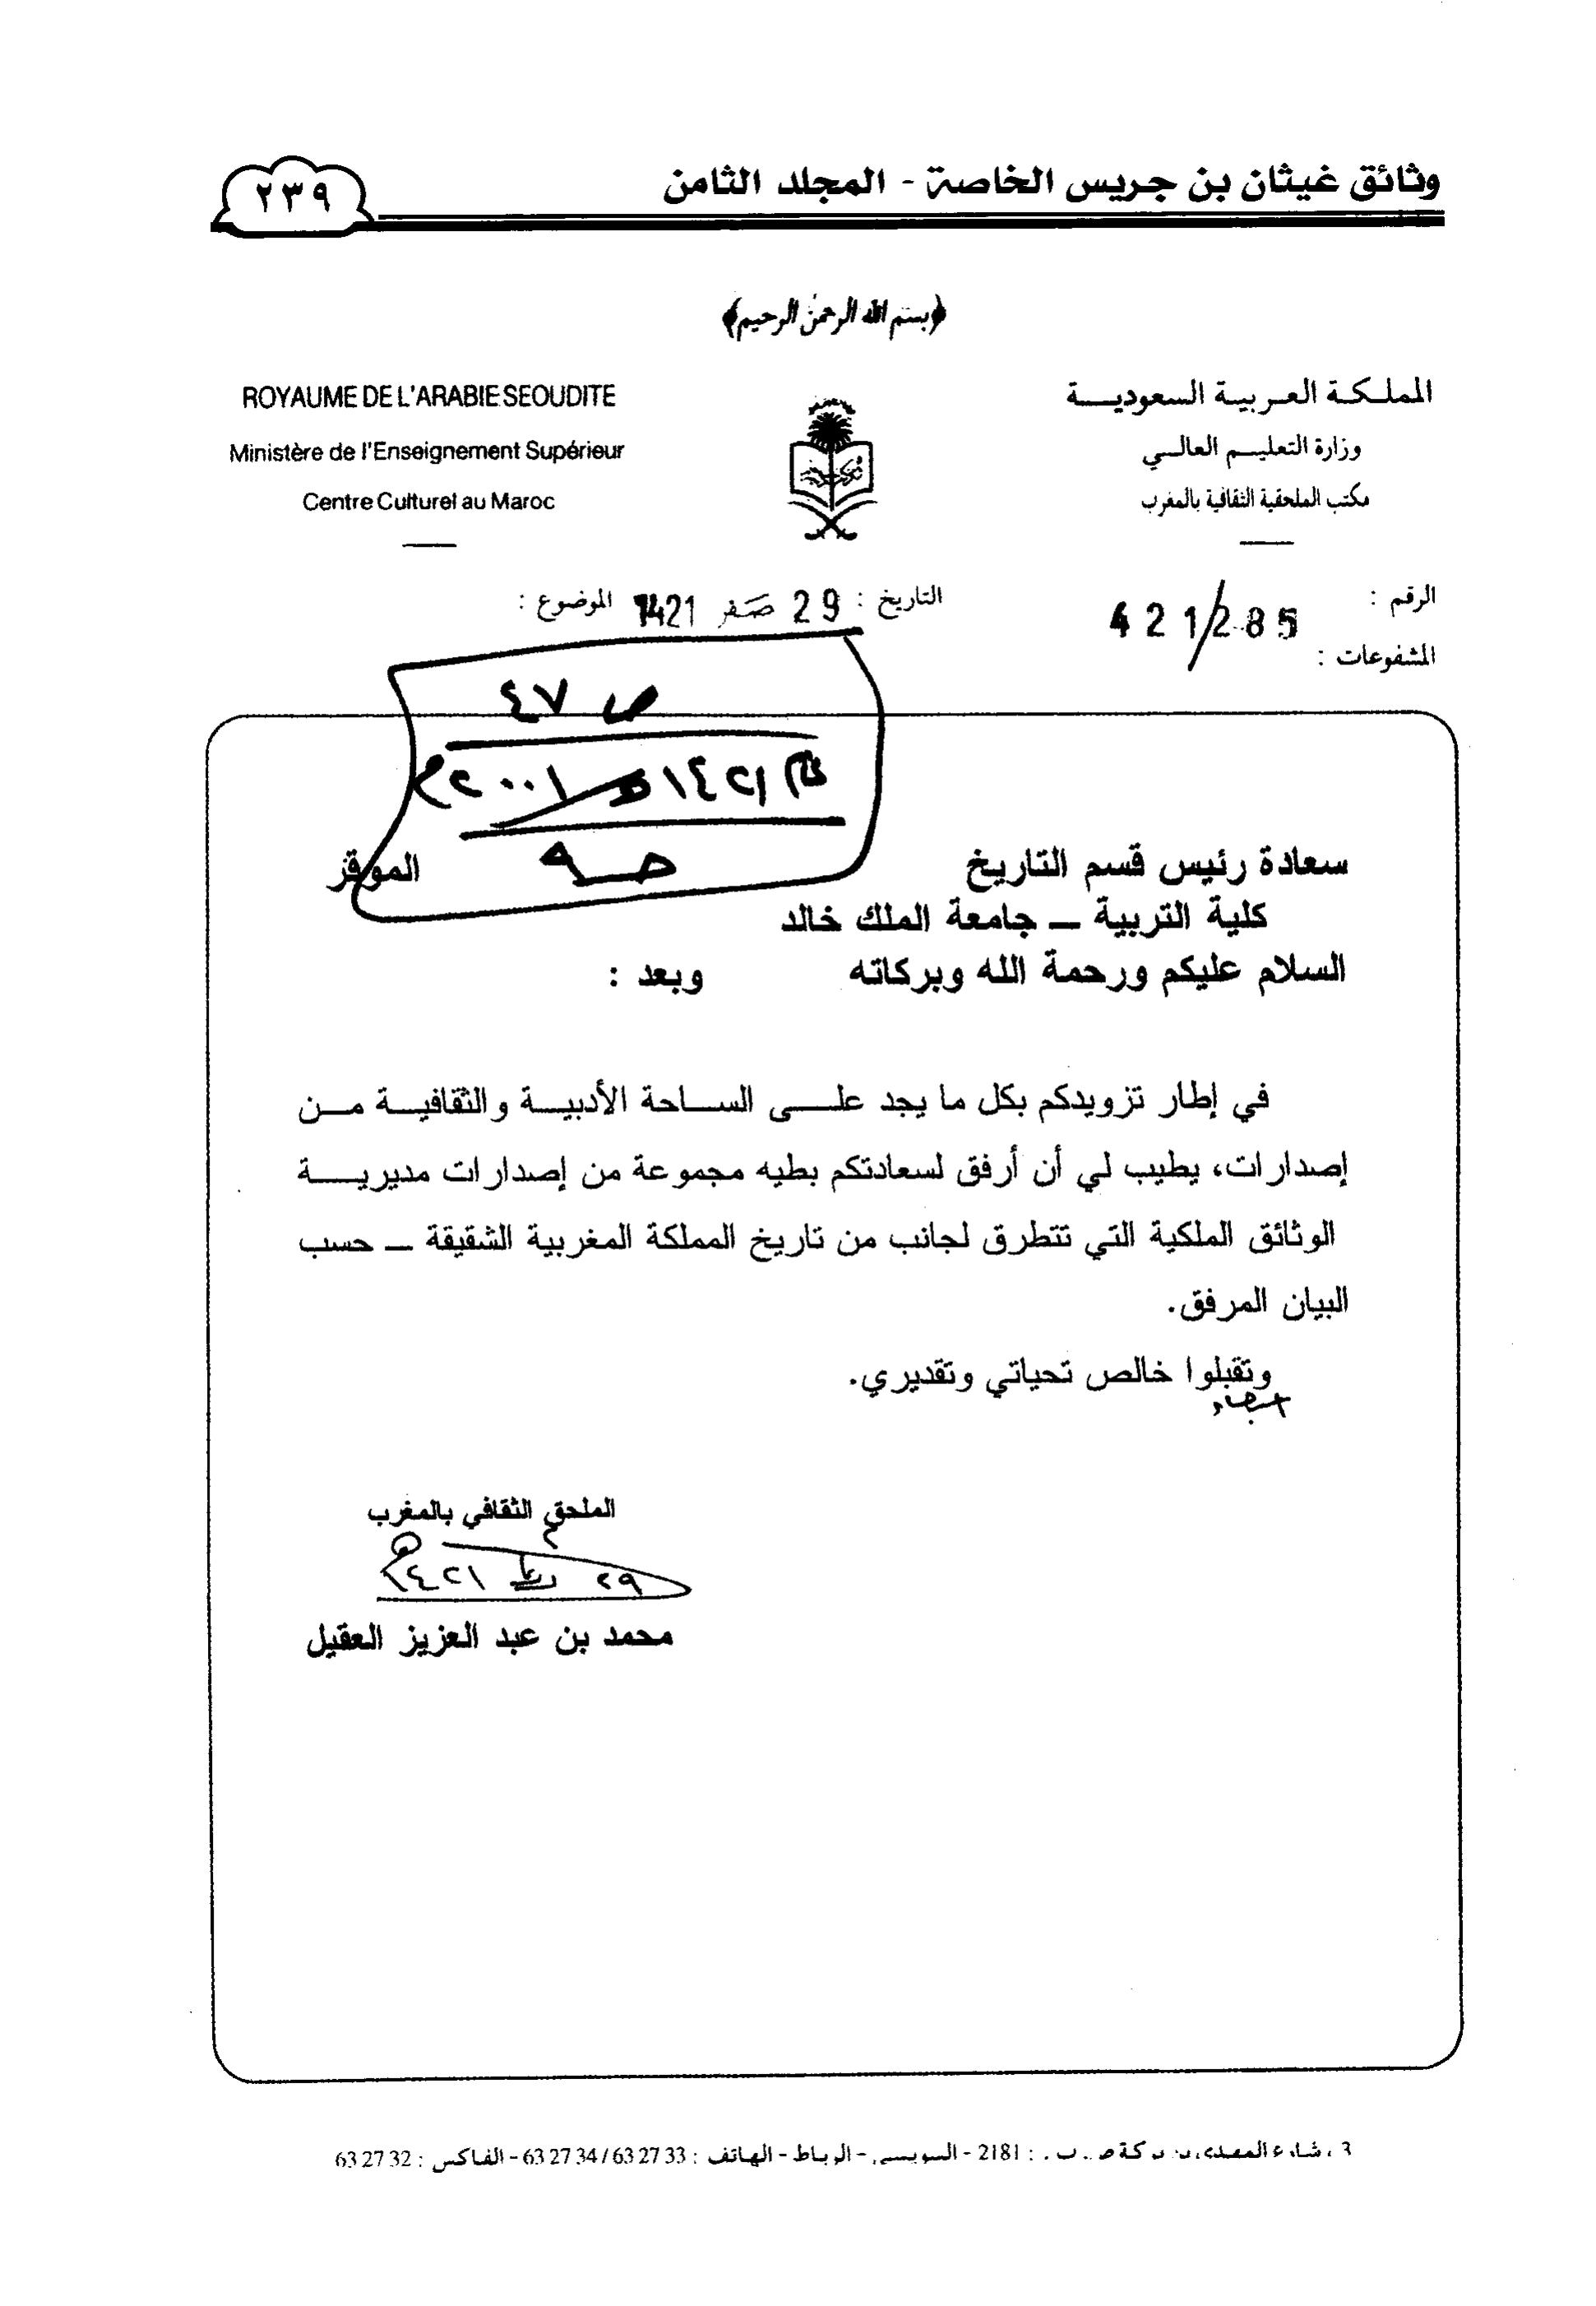 وثائق غيثان بن جريس الخاصة - المجلد الثامن
٢٣٩
﴿بسم الله الرحمن الرحيم﴾
المملكة العربية السعودية
وزارة التعليم العالي
مكتب الملحقية الثقافية بالمغرب
ROYAUME DE L'ARABIE SEOUDITE
Ministère de l'Enseignement Supérieur
Centre Culturel au Maroc
الرقم : 421/285
التاريخ : 29 صفر 1421
الموضوع :
المشفوعات :
ص ٤٧
١٤٢١هـ / ٢٠٠١م
سعادة رئيس قسم التاريخ الموقر
كلية التربية – جامعة الملك خالد
السلام عليكم ورحمة الله وبركاته وبعد :
في إطار تزويدكم بكل ما يجد على الساحة الأدبية والثقافية من
إصدارات، يطيب لي أن أرفق لسعادتكم بطيه مجموعة من إصدارات مديرية
الوثائق الملكية التي تتطرق لجانب من تاريخ المملكة المغربية الشقيقة – حسب
البيان المرفق.
وتقبلوا خالص تحياتي وتقديري.
الملحق الثقافي بالمغرب
محمد بن عبد العزيز العقيل
3 ، شارع المهدي بن بركة ص. ب. : 2181 - السويسي - الرباط - الهاتف : 63 27 33 / 63 27 34 - الفاكس : 63 27 32